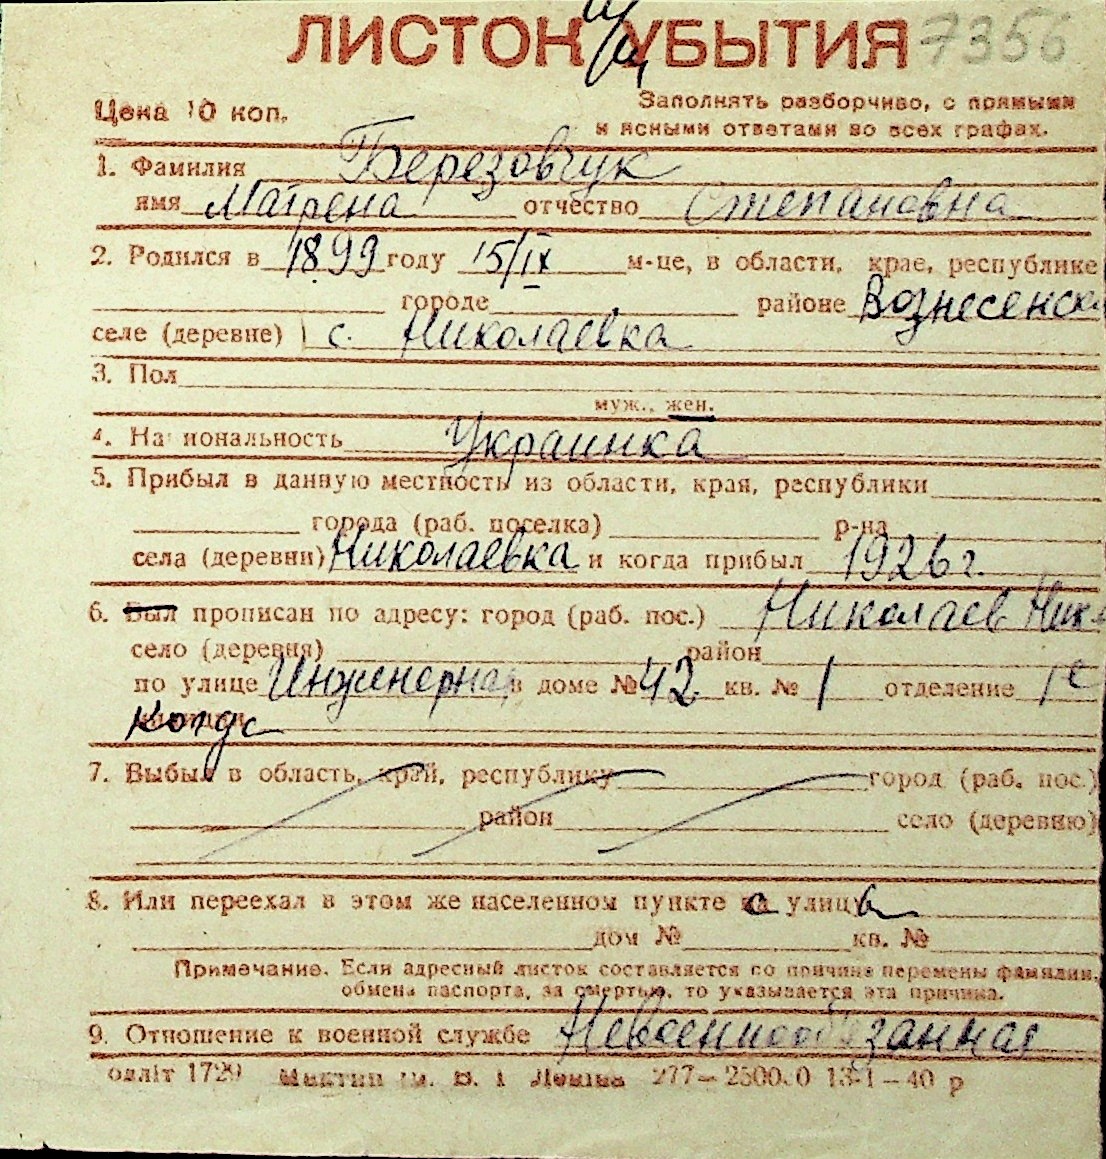 ЛИСТОК УБЫТИЯ 7356
Цена 10 коп.
Заполнять разборчиво, с прямыми
и ясными ответами во всех графах.
1. Фамилия Березовчук
имя Матрена отчество Степановна
2. Родился в 1899 году 15/IX м-це, в области, крае, республике
городе районе Вознесенск
селе (деревне) с. Николаевка
3. Пол
муж., жен.
4. Национальность Украинка
5. Прибыл в данную местность из области, края, республики
города (раб. поселка) р-на
села (деревни) Николаевка и когда прибыл 1926 г.
6. Был прописан по адресу: город (раб. пос.) Николаев Ник.
село (деревня) район
по улице Инженерная в доме № 42 кв. № 1 отделение 1е
7. Выбыл в область, край, республику город (раб. пос.)
район село (деревню)
8. Или переехал в этом же населенном пункте на улицу
дом № кв. №
Примечание. Если адресный листок составляется по причине перемены фамилии,
обмена паспорта, за смертью, то указывается эта причина.
9. Отношение к военной службе Невоеннообязанная
1729 277—2500.0 13-1—40 р